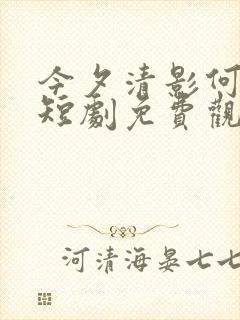 今夕清影何
短劇免費觀
河清海晏七七